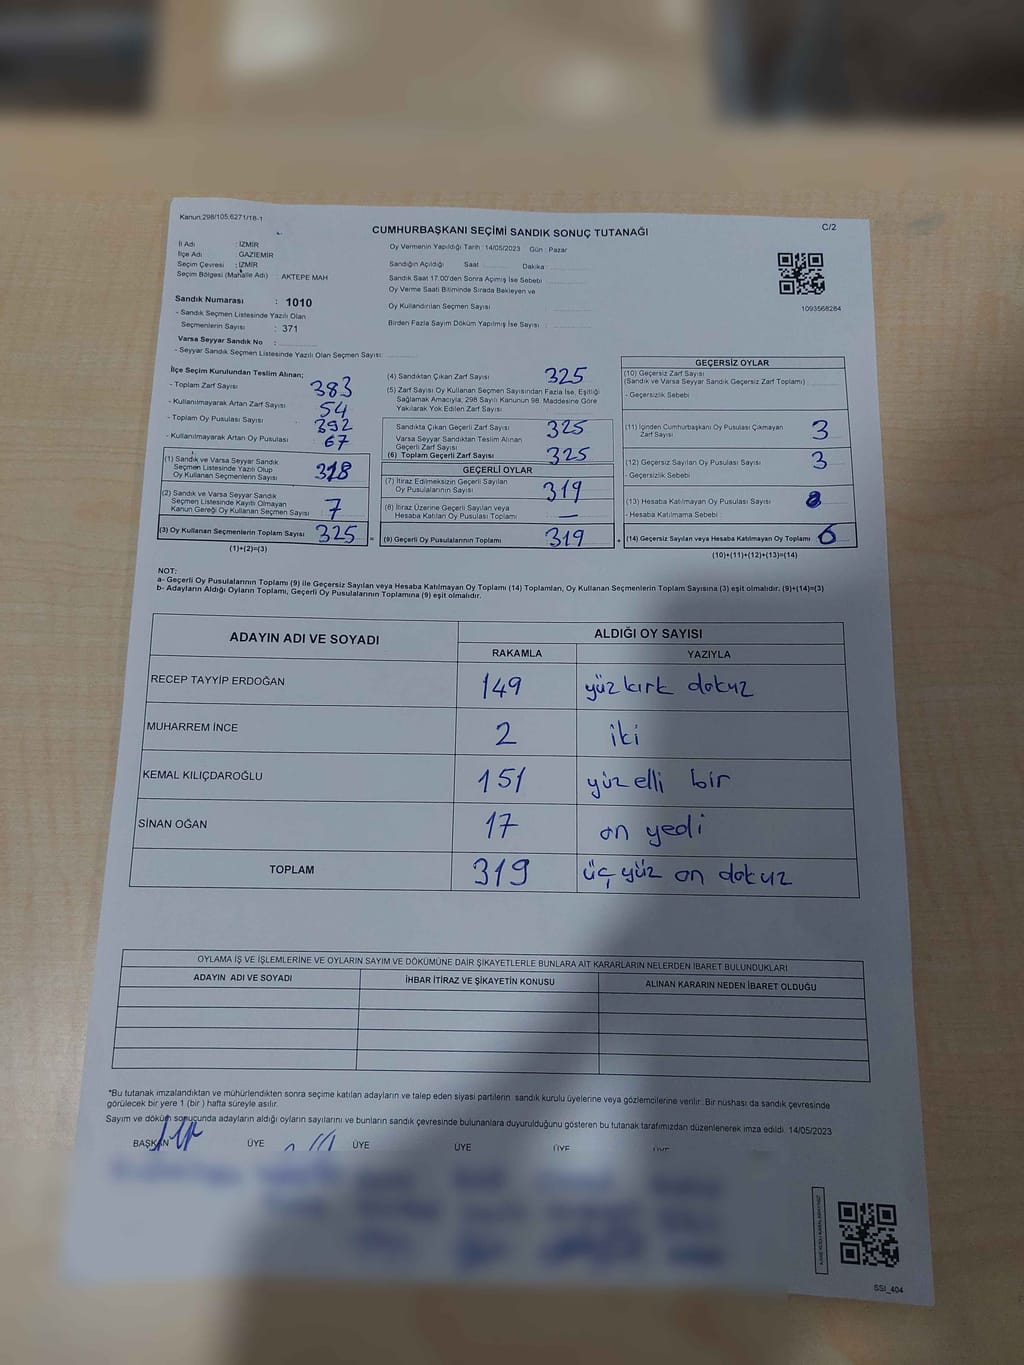 Kanun:298/105,6271/18-1
C/2
CUMHURBAŞKANI SEÇİMİ SANDIK SONUÇ TUTANAĞI
İl Adı : İZMİR
İlçe Adı GAZİEMİR
Seçim Çevresi : İZMİR
Seçim Bölgesi (Mahalle Adı) : AKTEPE MAH
Sandık Numarası : 1010
- Sandık Seçmen Listesinde Yazılı Olan
Seçmenlerin Sayısı : 371
Varsa Seyyar Sandık No :
- Seyyar Sandık Seçmen Listesinde Yazılı Olan Seçmen Sayısı:
Oy Vermenin Yapıldığı Tarih : 14/05/2023 Gün : Pazar
Sandığın Açıldığı Saat Dakika
Sandık Saat 17.00'den Sonra Açımış İse Sebebi
Oy Verme Saati Bitiminde Sırada Bekleyen ve
Oy Kullandırılan Seçmen Sayısı
Birden Fazla Sayım Döküm Yapılmış İse Sayısı
1093568284
İlçe Seçim Kurulundan Teslim Alınan;
- Toplam Zarf Sayısı 383
- Kullanılmayarak Artan Zarf Sayısı 54
- Toplam Oy Pusulası Sayısı 392
- Kullanılmayarak Artan Oy Pusulası : 67
(1) Sandık ve Varsa Seyyar Sandık
Seçmen Listesinde Yazılı Olup
Oy Kullanan Seçmenlerin Sayısı 318
(2) Sandık ve Varsa Seyyar Sandık
Seçmen Listesinde Kayıtlı Olmayan
Kanun Gereği Oy Kullanan Seçmen Sayısı 7
(3) Oy Kullanan Seçmenlerin Toplam Sayısı 325
(1)+(2)=(3)
(4) Sandıktan Çıkan Zarf Sayısı 325
(5) Zarf Sayısı Oy Kullanan Seçmen Sayısından Fazla İse, Eşitliği
Sağlamak Amacıyla; 298 Sayılı Kanunun 98. Maddesine Göre
Yakılarak Yok Edilen Zarf Sayısı
Sandıkta Çıkan Geçerli Zarf Sayısı 325
Varsa Seyyar Sandıktan Teslim Alınan
Geçerli Zarf Sayısı
(6) Toplam Geçerli Zarf Sayısı 325
GEÇERLİ OYLAR
(7) İtiraz Edilmeksizin Geçerli Sayılan
Oy Pusulalarının Sayısı 319
(8) İtiraz Üzerine Geçerli Sayılan veya
Hesaba Katılan Oy Pusulası Toplamı —
(9) Geçerli Oy Pusulalarının Toplamı 319
GEÇERSİZ OYLAR
(10) Geçersiz Zarf Sayısı
(Sandık ve Varsa Seyyar Sandık Geçersiz Zarf Toplamı)
- Geçersizlik Sebebi
(11) İçinden Cumhurbaşkanı Oy Pusulası Çıkmayan
Zarf Sayısı 3
(12) Geçersiz Sayılan Oy Pusulası Sayısı 3
- Geçersizlik Sebebi
(13) Hesaba Katılmayan Oy Pusulası Sayısı
- Hesaba Katılmama Sebebi :
(14) Geçersiz Sayılan veya Hesaba Katılmayan Oy Toplamı 6
(10)+(11)+(12)+(13)=(14)
NOT:
a- Geçerli Oy Pusulalarının Toplamı (9) ile Geçersiz Sayılan veya Hesaba Katılmayan Oy Toplamı (14) Toplamları, Oy Kullanan Seçmenlerin Toplam Sayısına (3) eşit olmalıdır. (9)+(14)=(3)
b- Adayların Aldığı Oyların Toplamı, Geçerli Oy Pusulalarının Toplamına (9) eşit olmalıdır.
ADAYIN ADI VE SOYADI ALDIĞI OY SAYISI
RAKAMLA YAZIYLA
RECEP TAYYİP ERDOĞAN 149 yüz kırk dokuz
MUHARREM İNCE 2 iki
KEMAL KILIÇDAROĞLU 151 yüz elli bir
SİNAN OĞAN 17 on yedi
TOPLAM 319 üç yüz on dokuz
OYLAMA İŞ VE İŞLEMLERİNE VE OYLARIN SAYIM VE DÖKÜMÜNE DAİR ŞİKAYETLERLE BUNLARA AİT KARARLARIN NELERDEN İBARET BULUNDUKLARI
ADAYIN ADI VE SOYADI İHBAR İTİRAZ VE ŞİKAYETİN KONUSU ALINAN KARARIN NEDEN İBARET OLDUĞU
*Bu tutanak imzalandıktan ve mühürlendikten sonra seçime katılan adayların ve talep eden siyasi partilerin sandık kurulu üyelerine veya gözlemcilerine verilir. Bir nüshası da sandık çevresinde
görülecek bir yere 1 (bir ) hafta süreyle asılır.
Sayım ve döküm sonucunda adayların aldığı oyların sayılarını ve bunların sandık çevresinde bulunanlara duyurulduğunu gösteren bu tutanak tarafımızdan düzenlenerek imza edildi. 14/05/2023
BAŞKAN ÜYE ÜYE ÜYE ÜYE ÜYE
SSI_404